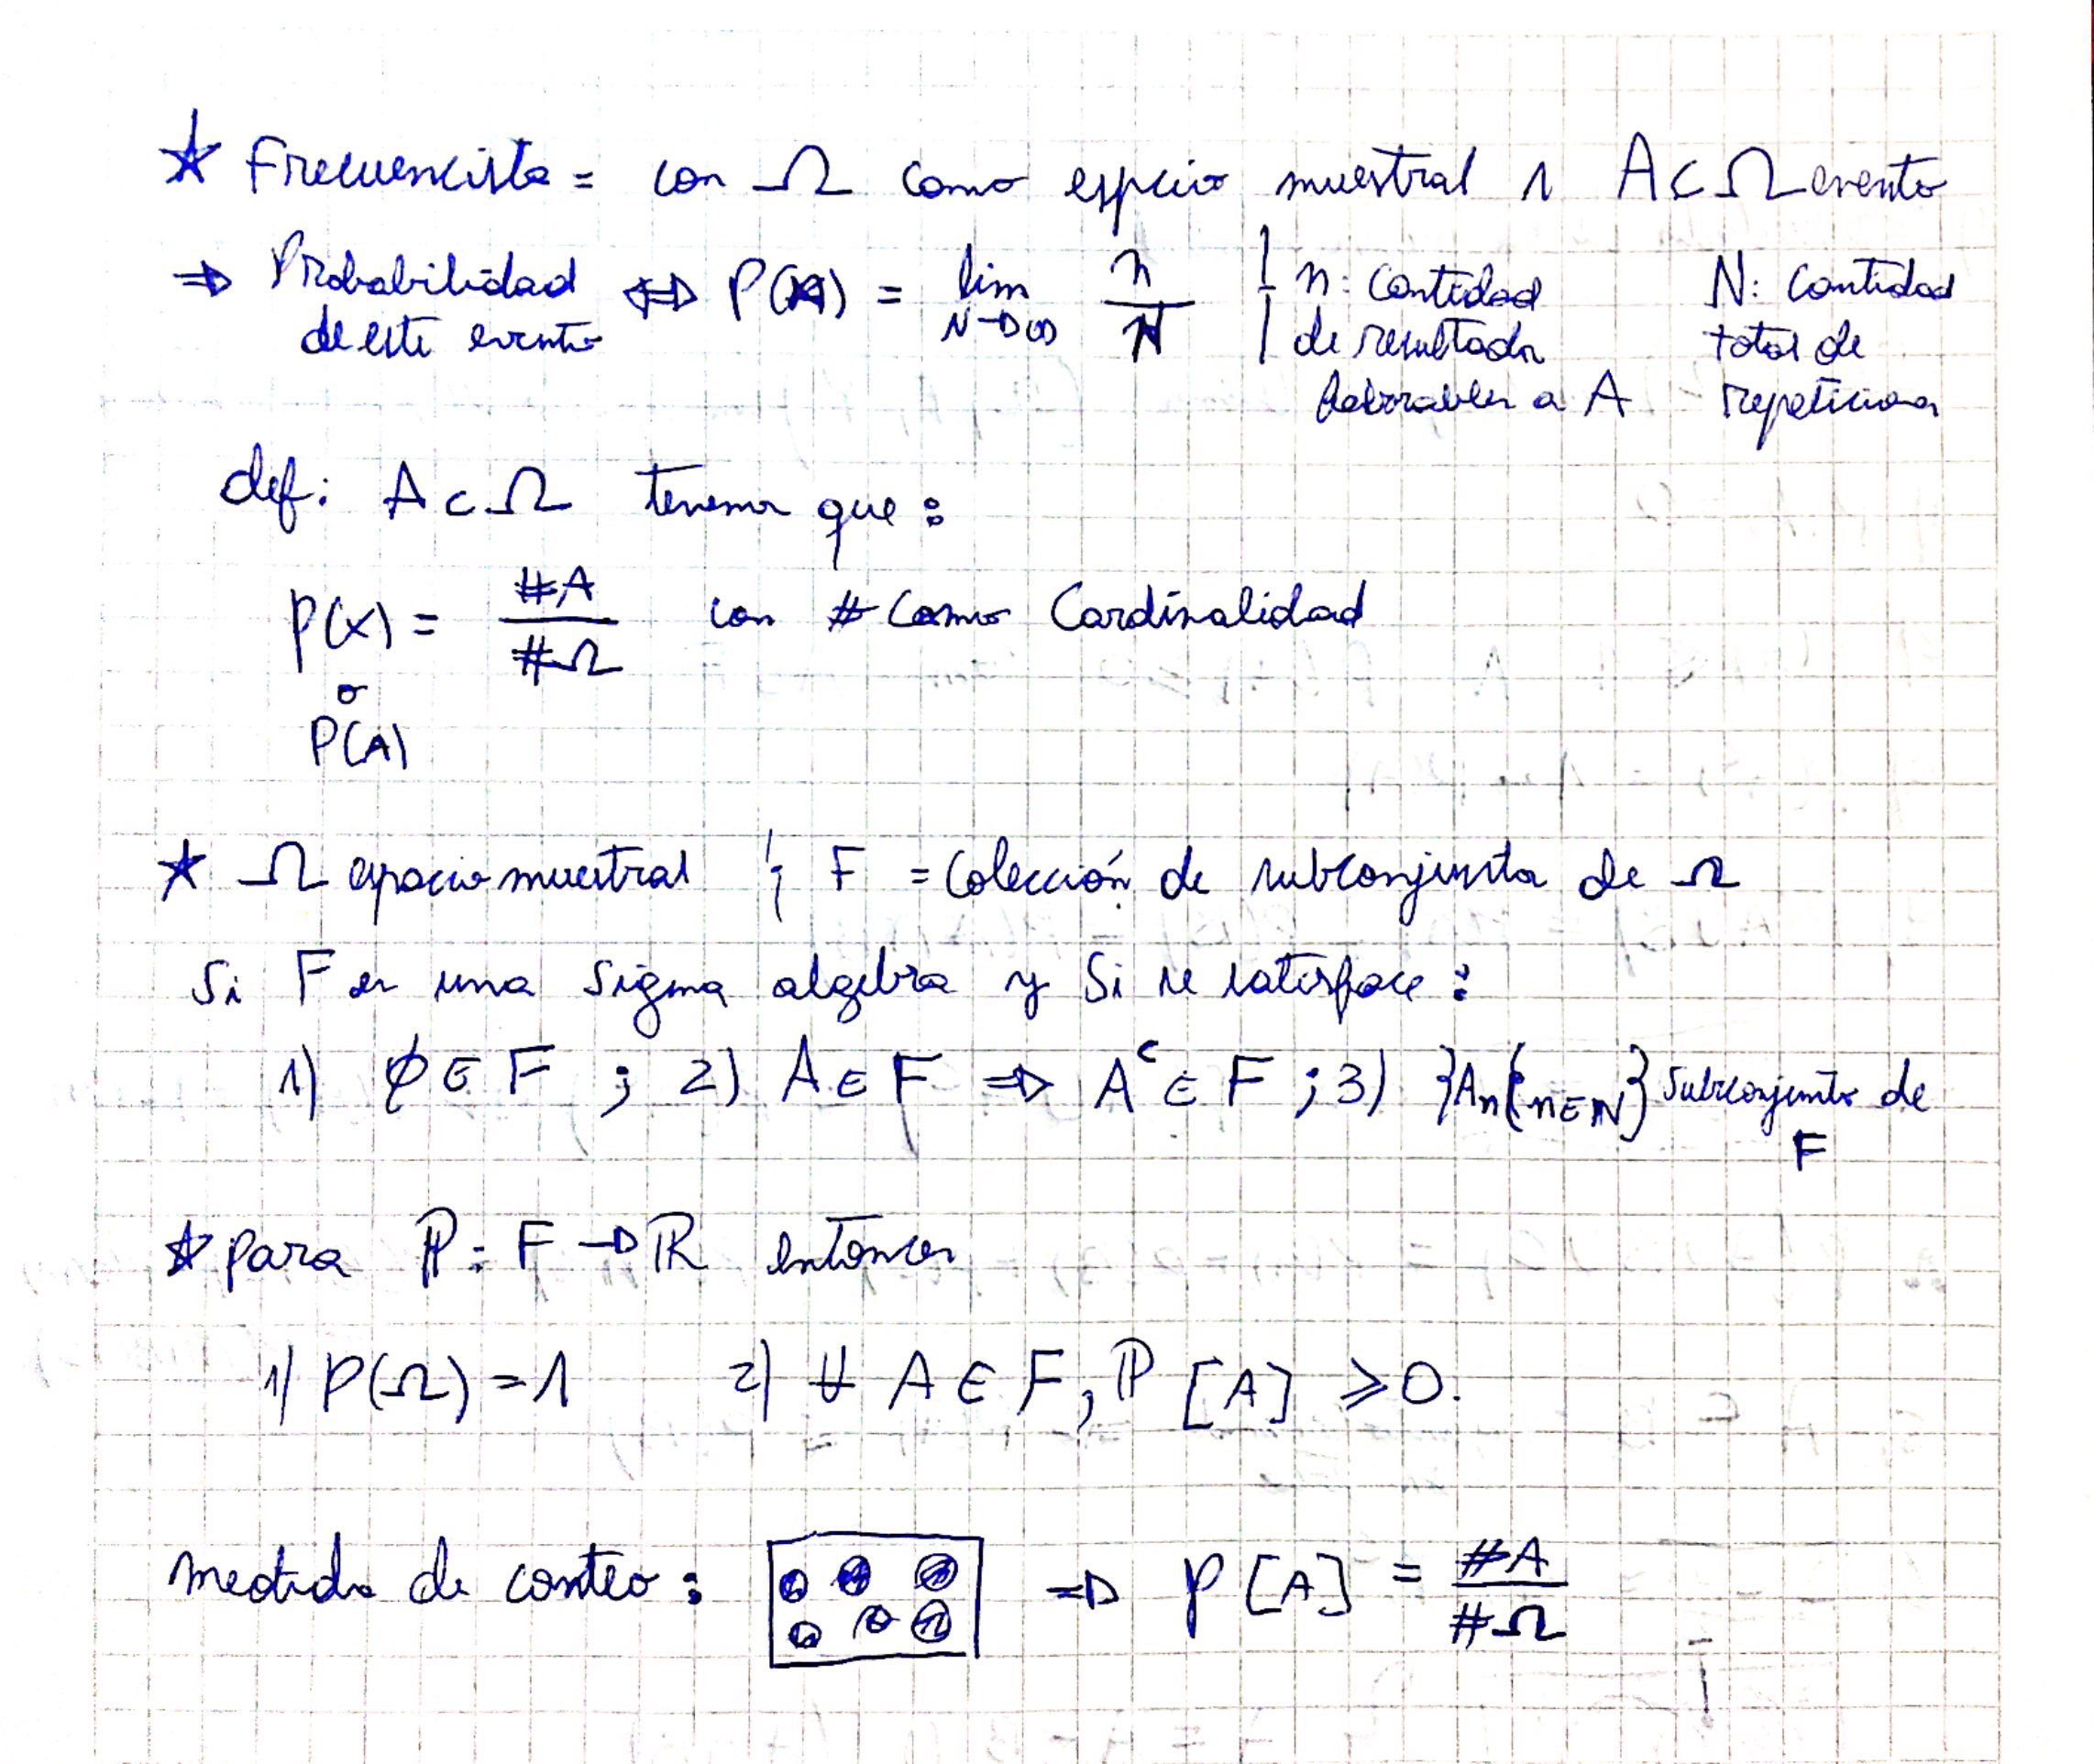 ☆ Frecuencista = con Ω como espacio muestral ∧ A ⊂ Ω evento
⇒ Probabilidad de este evento ⇔ P(A) = lim N→∞ n/N | n: Cantidad de resultados favorables a A   N: Cantidad total de repeticiones
def: A ⊂ Ω tenemos que:
P(x) = #A/#Ω con # como Cardinalidad
o
P(A)
☆ Ω espacio muestral ; F = Colección de subconjuntos de Ω
Si F es una sigma algebra y Si se satisface:
1) ϕ ∈ F ; 2) A ∈ F ⇒ Aᶜ ∈ F ; 3) }An{n∈ℕ} Subconjunto de F
☆ para ℙ: F → ℝ entonces
1) P(Ω) = 1   2) ∀ A ∈ F, ℙ [A] ⩾ 0.
medida de conteo: ⇒ P [A] = #A/#Ω